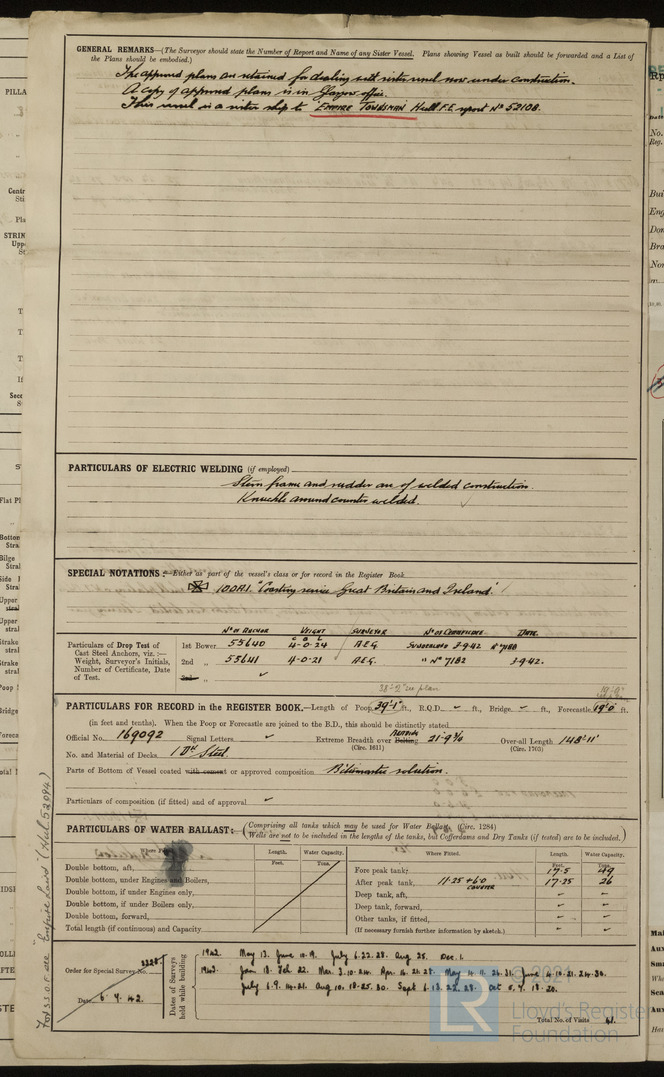 GENERAL REMARKS—(The Surveyor should state the Number of Report and Name of any Sister Vessel. Plans showing Vessel as built should be forwarded and a List of
the Plans should be embodied.)
The approved plans are retained for dealing with sister vessel now under construction.
A copy of approved plans is in Glasgow office.
This vessel is a sister ship to EMPIRE TOWNSMAN Hull F.E. report No 52108.
PARTICULARS OF ELECTRIC WELDING (if employed)
Stern frame and rudder are of welded construction.
Knuckle around counter welded.
SPECIAL NOTATIONS:—Either as part of the vessel's class or for record in the Register Book.
100A1. "Coasting service Great Britain and Ireland."
No OF ANCHOR WEIGHT SURVEYOR No OF CERTIFICATE DATE.
Particulars of Drop Test of
Cast Steel Anchors, viz.:—
Weight, Surveyor's Initials,
Number of Certificate, Date
of Test.
1st Bower 55640 4-0-24 A.E.G. SUNDERLAND 3-9-42 No 7188
2nd „ 55641 4-0-21 A.E.G. " No 7182 3-9-42.
3rd „
PARTICULARS FOR RECORD in the REGISTER BOOK.—Length of Poop 39'-1" ft., R.Q.D. ft., Bridge ft., Forecastle 19'0" ft.
(in feet and tenths). When the Poop or Forecastle are joined to the B.D., this should be distinctly stated
Official No. 169092 Signal Letters. Extreme Breadth over Belting 21-9⅜ Over-all Length 148'-11"
(Circ. 1611) (Circ. 1703)
No. and Material of Decks 1 Dk Steel.
Parts of Bottom of Vessel coated with cement or approved composition Bitumastic solution.
Particulars of composition (if fitted) and of approval
PARTICULARS OF WATER BALLAST:— (Comprising all tanks which may be used for Water Ballast (Circ. 1284)
Wells are not to be included in the lengths of the tanks, but Cofferdams and Dry Tanks (if tested) are to be included.)
Where Fitted. Length. Water Capacity. Where Fitted. Length. Water Capacity.
Feet. Tons. Feet. Tons.
Double bottom, aft, Fore peak tank, 17.5 49
Double bottom, under Engines and Boilers, After peak tank, 11.25 + 6.0 COUNTER 17.25 26
Double bottom, if under Engines only, Deep tank, aft,
Double bottom, if under Boilers only, Deep tank, forward,
Double bottom, forward, Other tanks, if fitted,
Total length (if continuous) and Capacity (If necessary furnish further information by sketch.)
Order for Special Survey No. 3328.
Date 6.4.42.
Dates of Surveys
held while building
1942. May 13. June 10.9. July 6.22.28. Aug 25. Dec. 1.
1943. Jan 18. Feb 22. Mar. 3.10.24. Apr. 14.21.28. May 4.11.26.31. June 4.10.21.24.30.
July 6.9.14.21. Aug 10.18.25.30. Sept 6.13.22.28. Oct 5.7.18.20.
Total No. of Visits 41.
For S.S.O.F. see "Empire Laird" (Hul 52094)
LR
© 2021
Lloyd's Register
Foundation